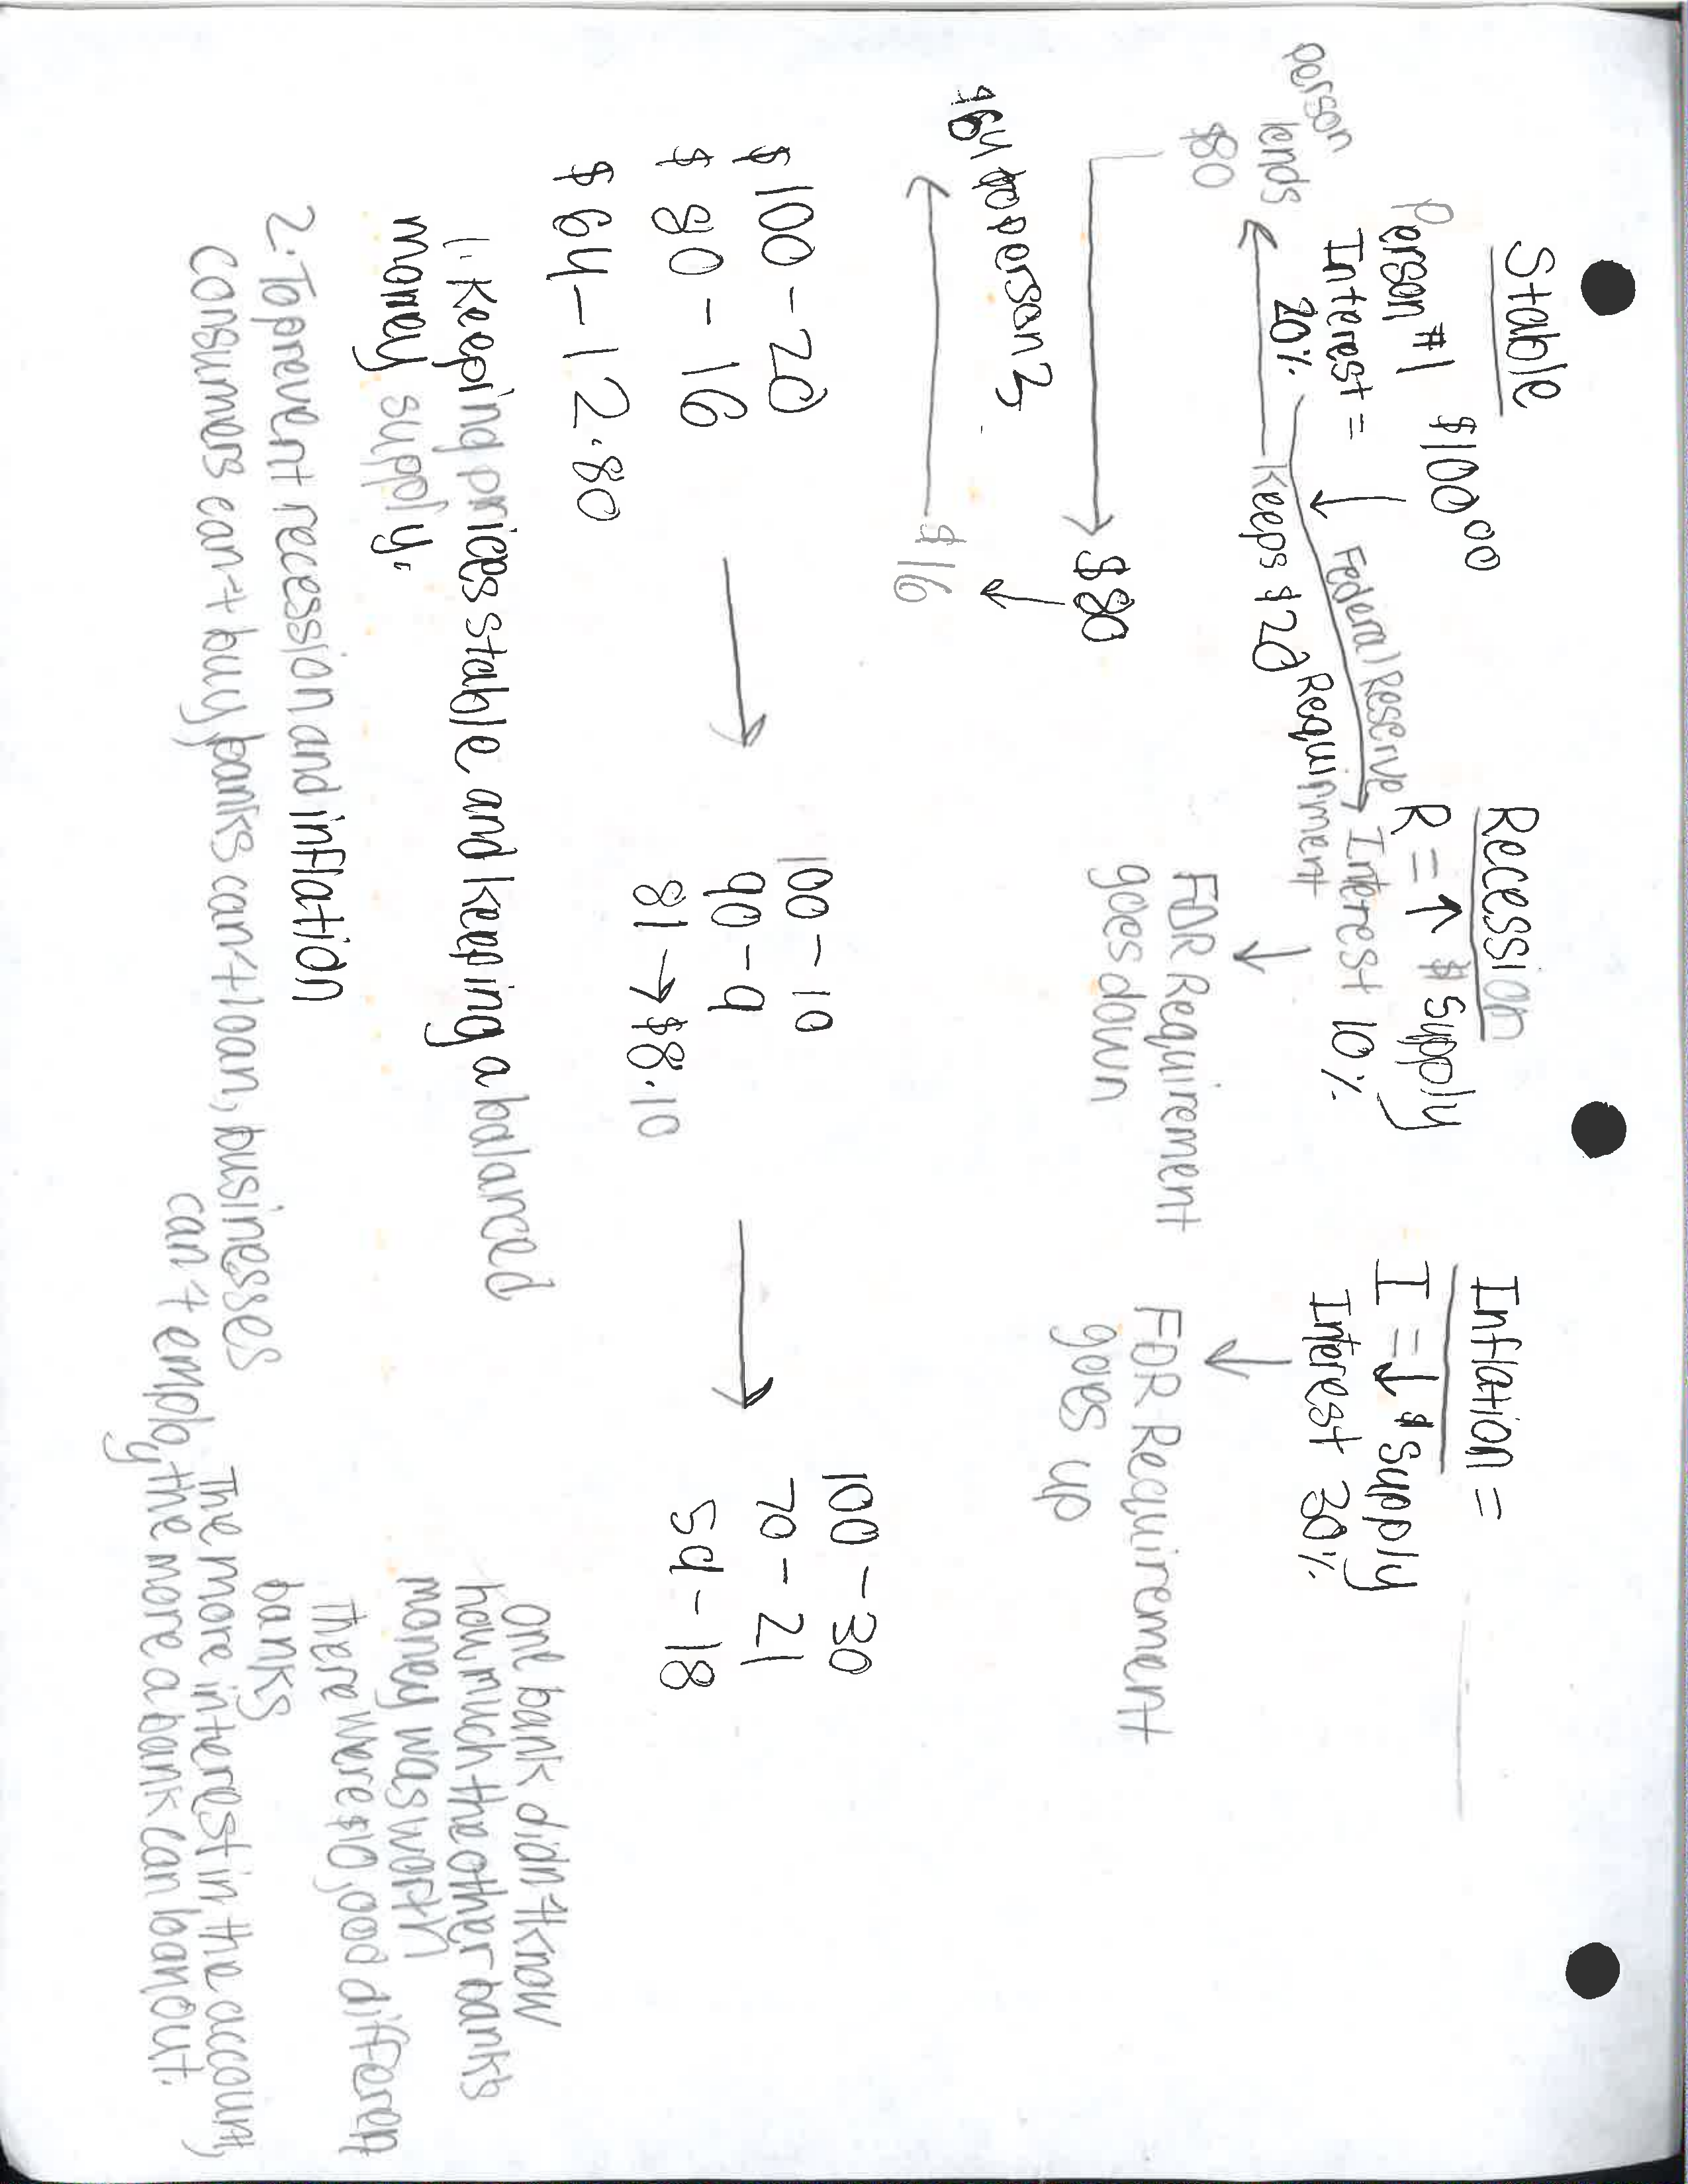 Stable
Person #1 $100 00
Interest =
20%
Federal Reserve
Keeps $20 Requirnment
person
lends
$80
$80
$16
$64 to person 3
Recession
R = ↑ $ Supply
Interest 10%
FDR Requirement
goes down
Inflation =
I = ↓ $ Supply
Interest 30%
FDR Requirement
goes up
$100 - 20
$ 80 - 16
$ 64 - 12.80
100 - 10
90 - 9
81 → $8.10
100 - 30
70 - 21
59 - 18
1. Keeping prices stable and keeping a balanced
money supply.
2. To prevent recession and inflation
consumers can't buy, banks can't loan, businesses
can't employ
One bank didn't know
how much the other banks
money was worth
There were $10,000 different
banks
The more interest in the account,
the more a bank can loan out.